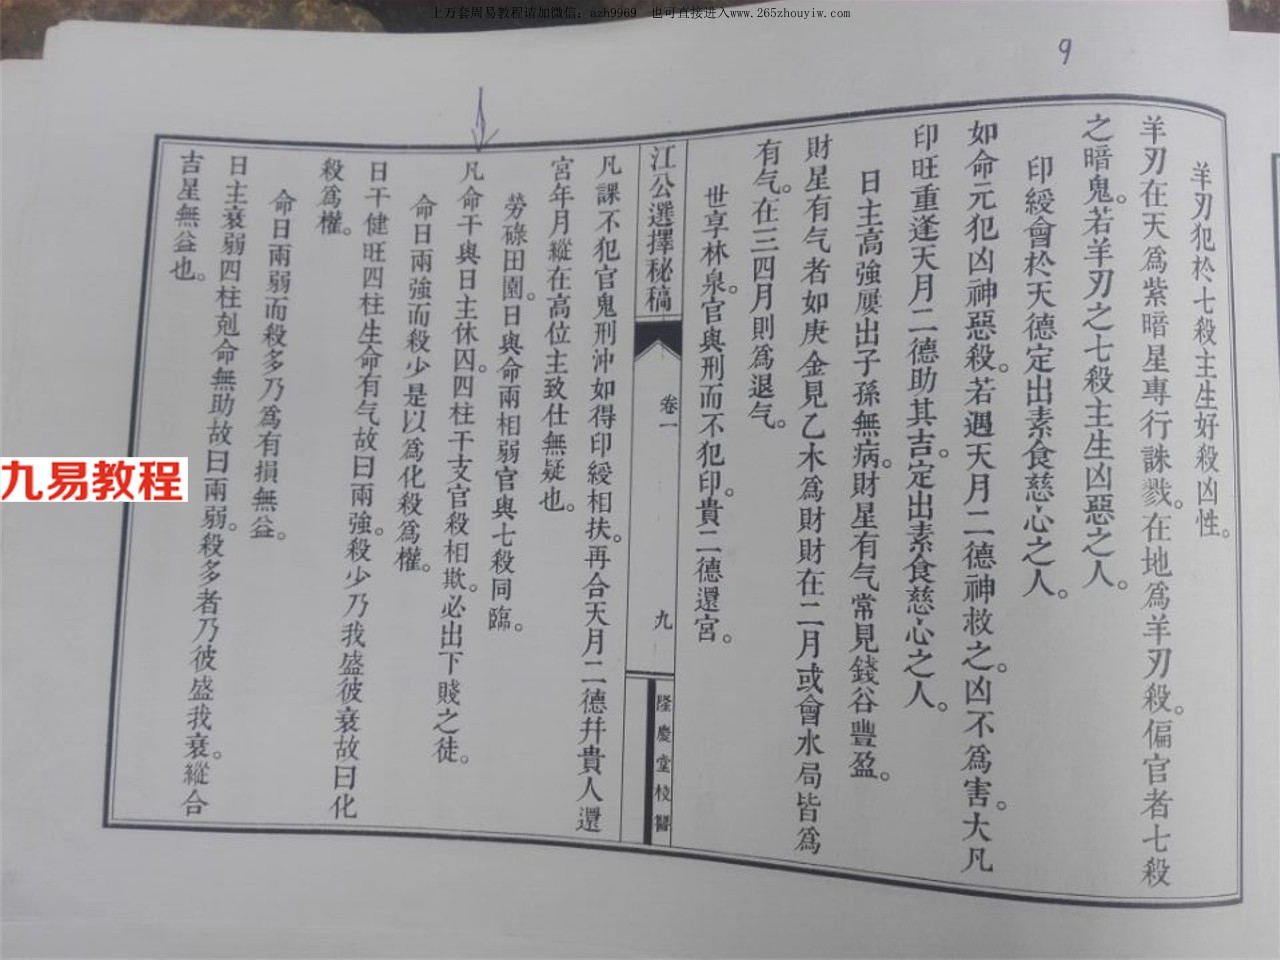 上万套周易教程请加微信：azh9969 也可直接进入www.265zhouyiw.com
9
羊刃犯於七殺主生好殺凶性。
羊刃在天為紫暗星專行誅戮。在地為羊刃殺。偏官者七殺
之暗鬼。若羊刃之七殺主生凶惡之人。
印綬會於天德定出素食慈心之人。
如命元犯凶神惡殺。若遇天月二德神救之。凶不為害。大凡
印旺重逢天月二德助其吉。定出素食慈心之人。
日主高強屢出子孫無病。財星有气常見錢谷豐盈。
財星有气者如庚金見乙木為財財在二月或會水局皆為
有气。在三四月則為退气。
世享林泉。官與刑而不犯印。貴二德還宮。
江公選擇秘稿
卷一
九
隆慶堂校
凡課不犯官鬼刑沖如得印綬相扶。再合天月二德幷貴人還
宮年月縱在高位主致仕無疑也。
勞碌田園。日與命兩相弱官與七殺同臨。
凡命干與日主休囚。四柱干支官殺相欺。必出下賤之徒。
命日兩強而殺少是以為化殺為權。
日干健旺四柱生命有气故曰兩強。殺少乃我盛彼衰故曰化
殺為權。
命日兩弱而殺多乃為有損無益。
日主衰弱四柱剋命無助故曰兩弱。殺多者乃彼盛我衰。縱合
吉星無益也。
九易教程